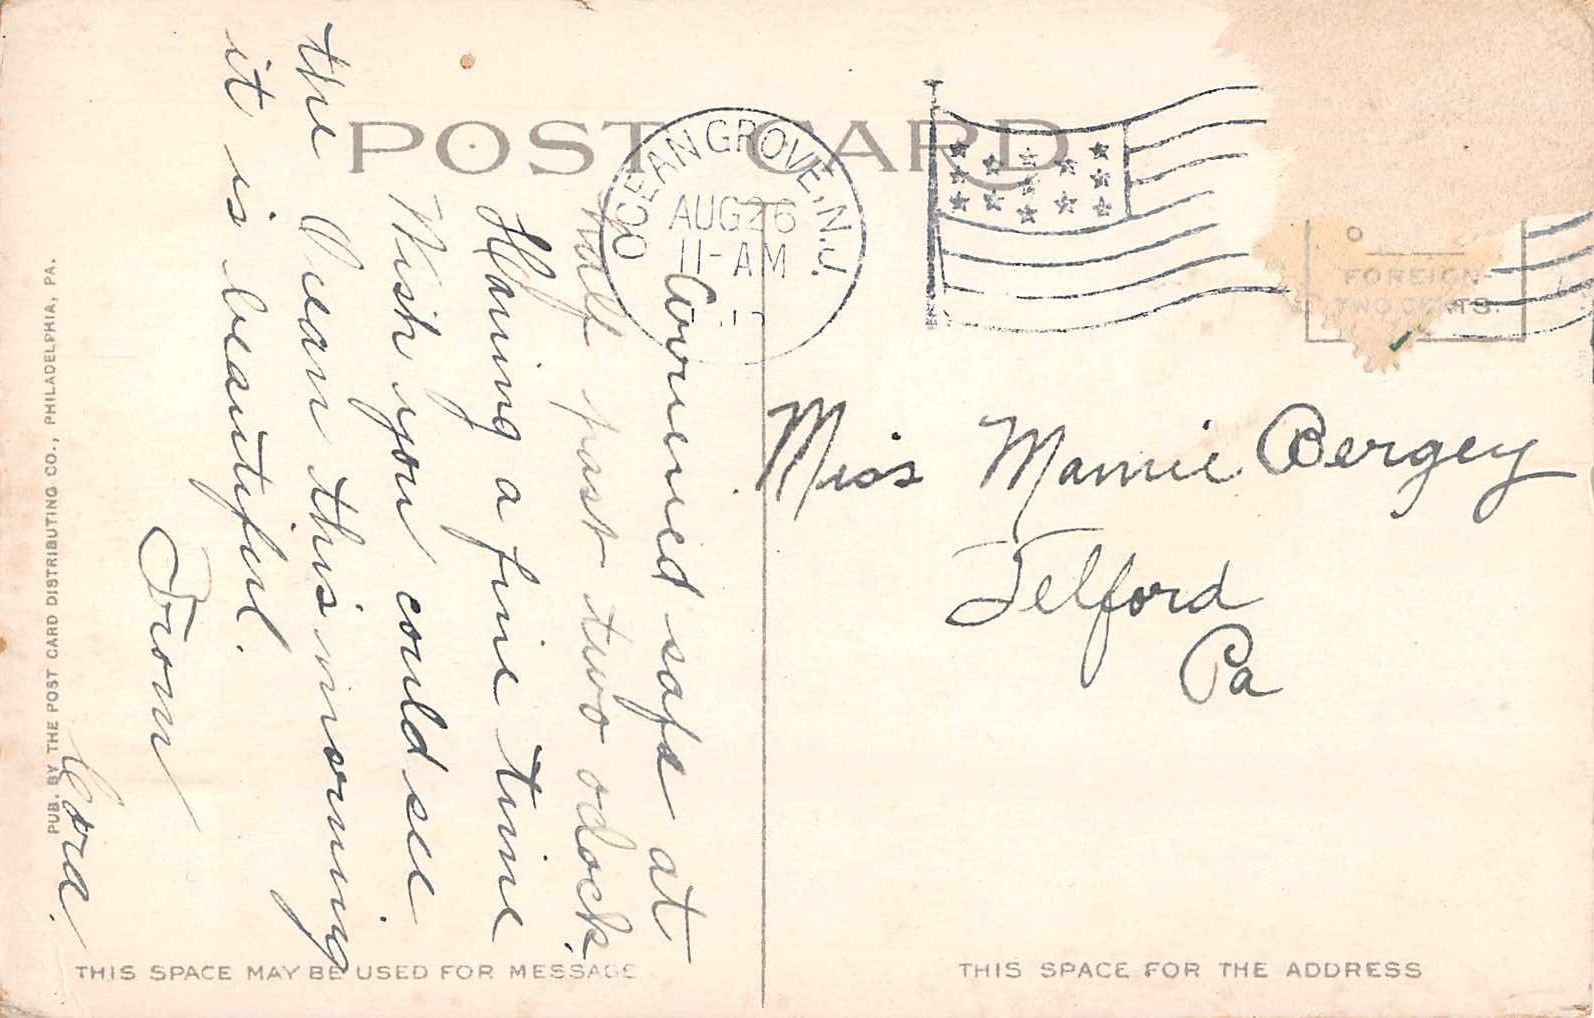 POST CARD
OCEAN GROVE, N.J.
AUG 26
11-AM
FOREIGN-
TWO CENTS.
Arrived safe at
half past two oclock.
Having a fine time
Wish you could see
the Ocean this morning
it is beautiful.
From
Cora.
Miss Mamie Bergey
Telford
Pa
PUB. BY THE POST CARD DISTRIBUTING CO., PHILADELPHIA, PA.
THIS SPACE MAY BE USED FOR MESSAGE
THIS SPACE FOR THE ADDRESS